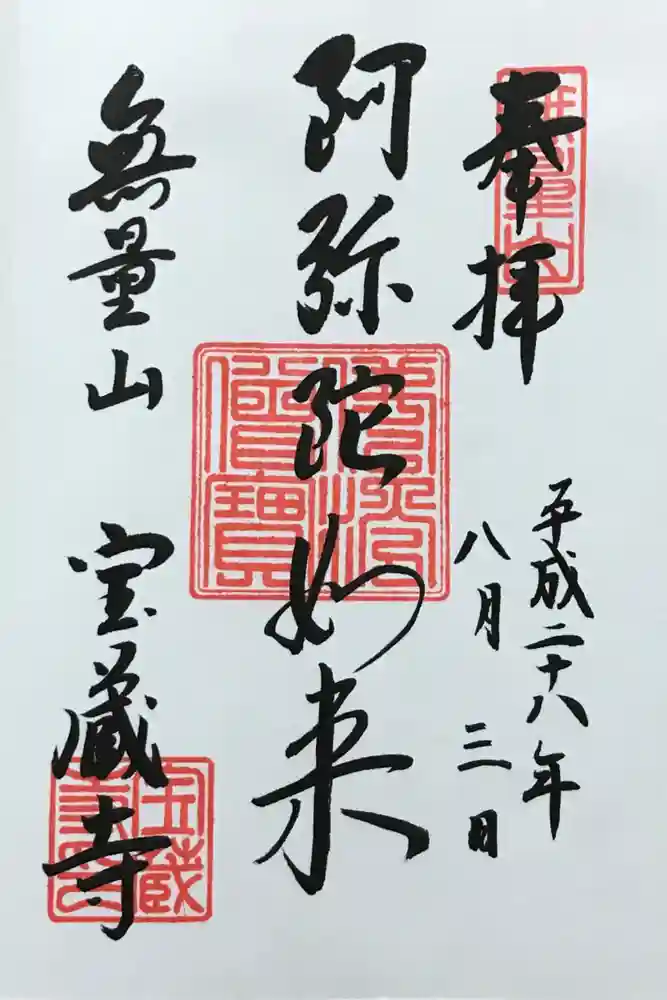 奉拝
平成二十八年
八月三日
阿弥陀如来
無量山 宝蔵寺
無量山
佛法僧寳